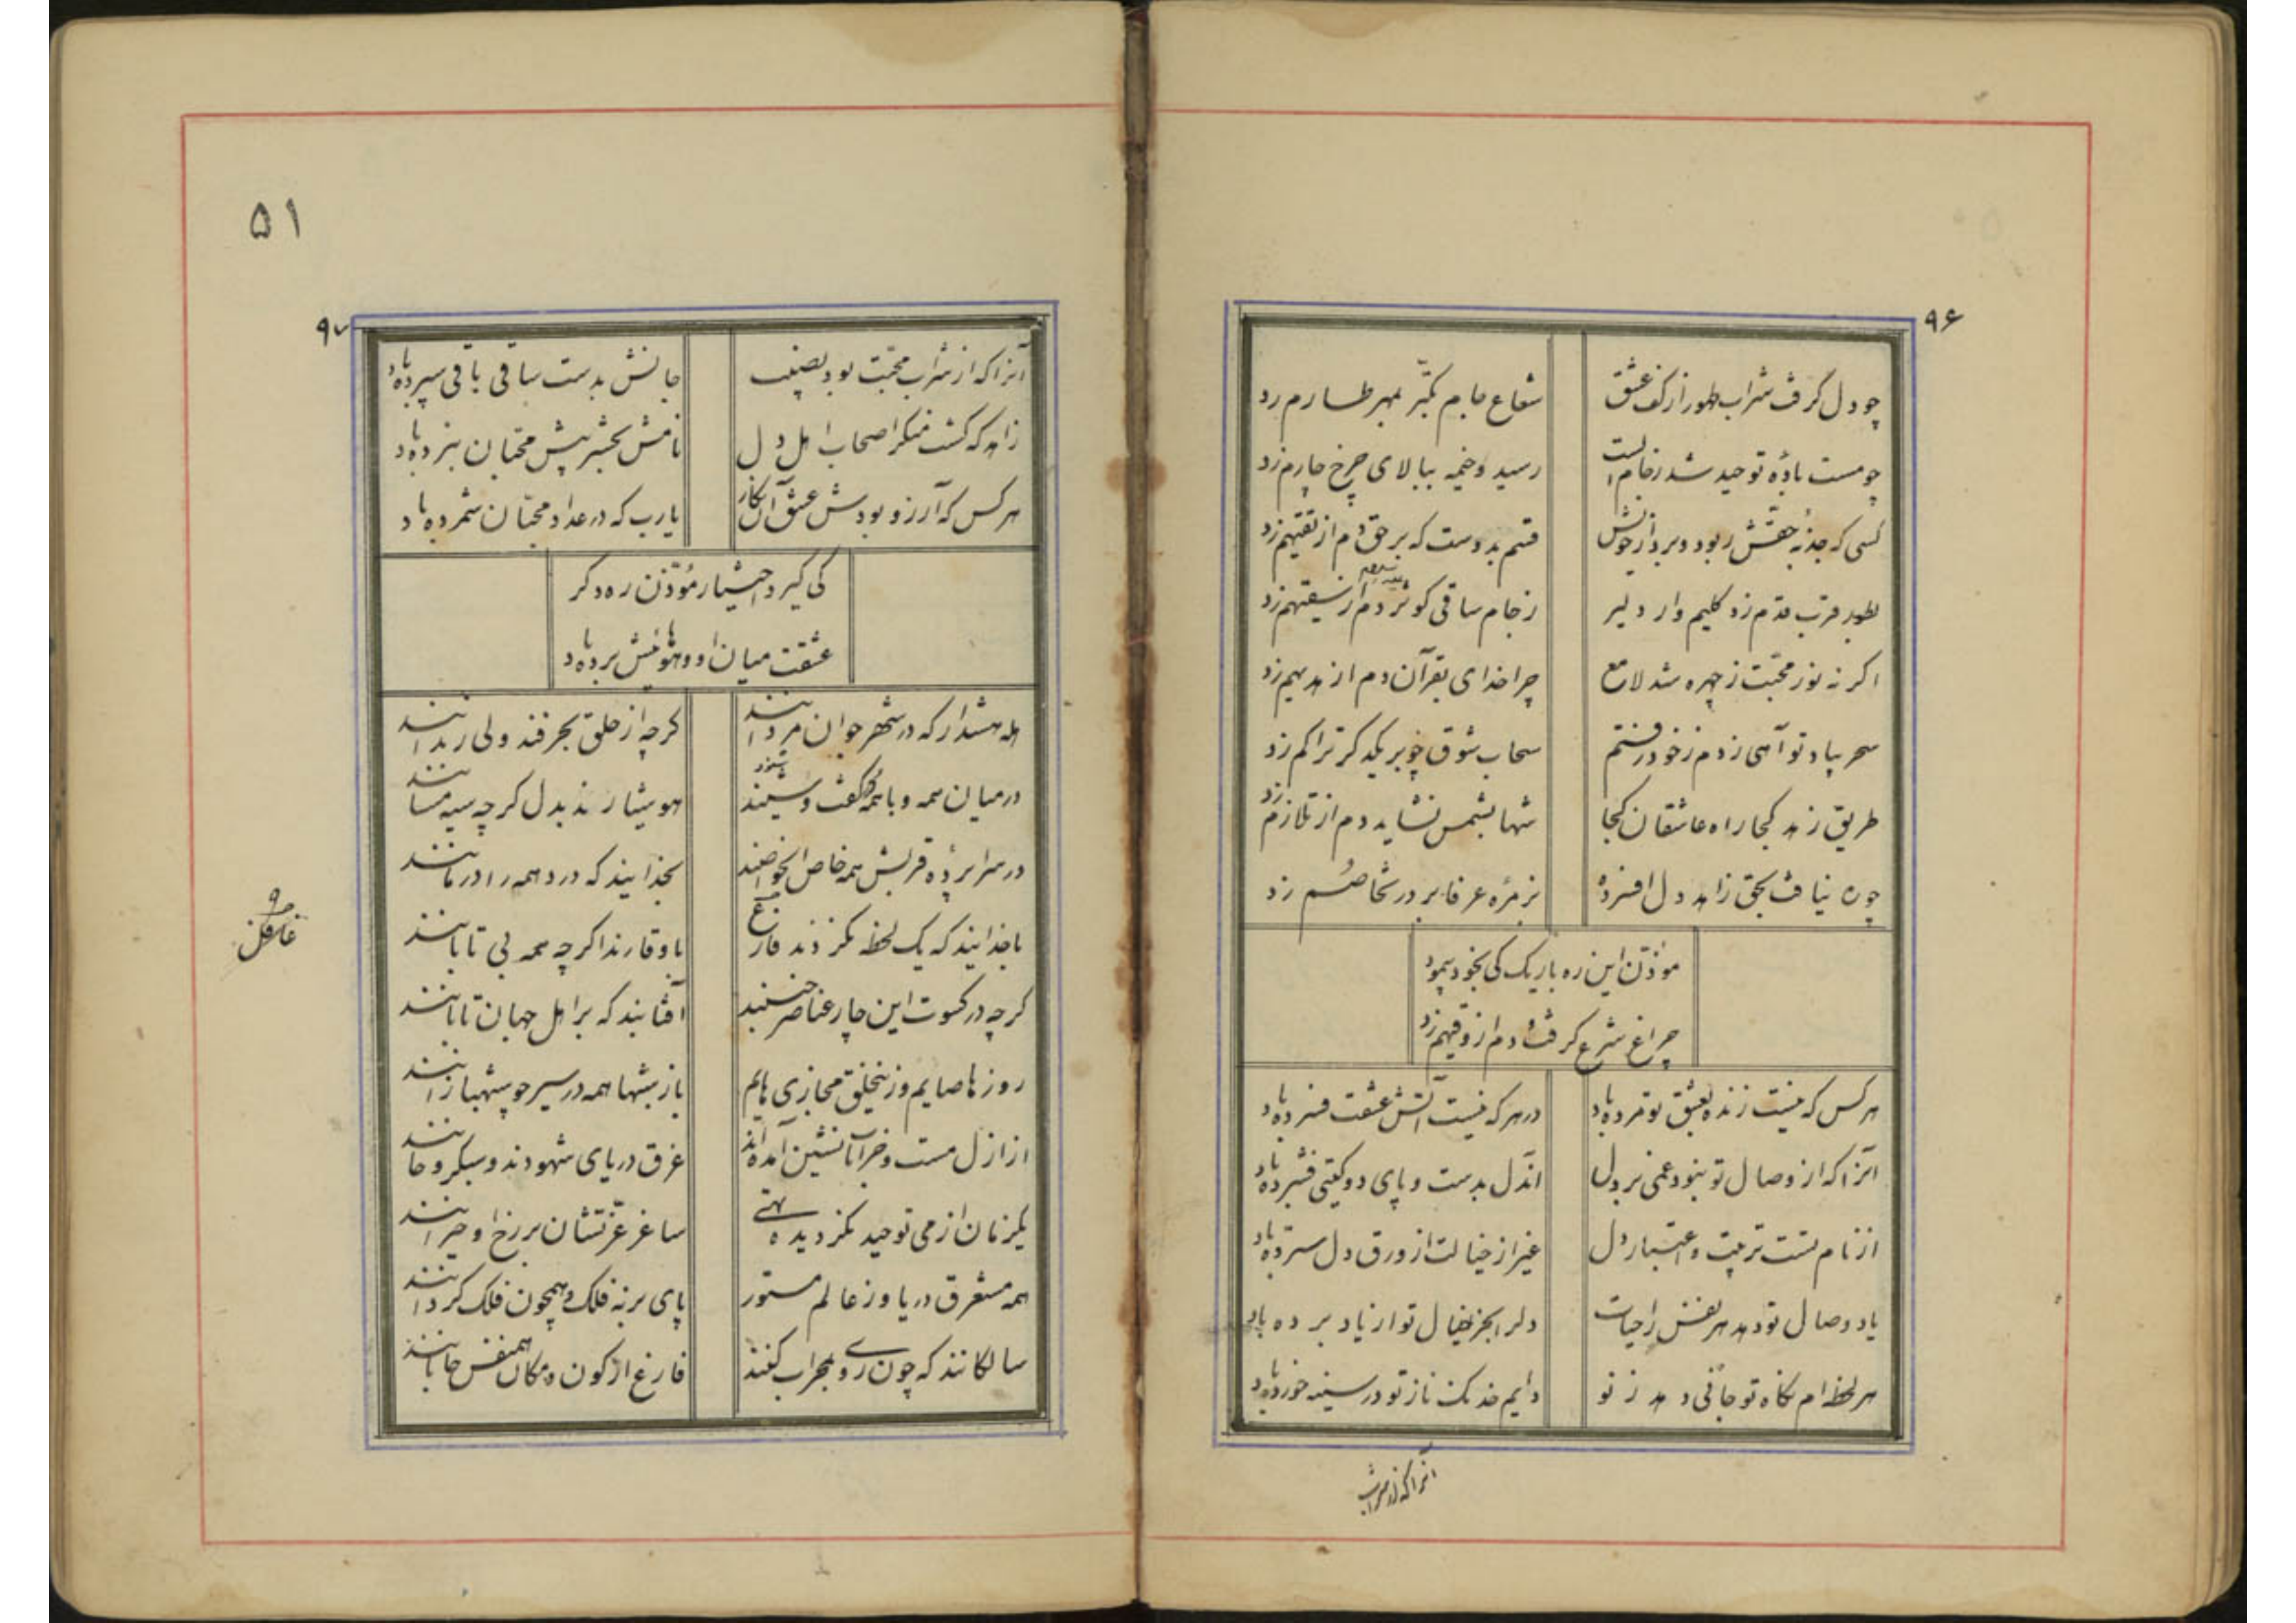 ۹۶
چو دل گرفت شراب طهور از کف عشق
شعاع جام تجبّر بمهر طارم زد
چو مست بادهٔ توحید شد ز جام الست
رسید و خیمه ببالای چرخ چارم زد
کسی که جذبهٔ حقّش ربود و برد از خویش
قسم بدوست که بر حق دم از تقیهم زد
بطور قرب قدم زد کلیم وار دلیر
ز جام ساقی کوثر دم از سقیهم زد
اگر نه نور محبّت ز چهره شد لامع
چرا خدای بقرآن دم از یدیهم زد
سحر بیاد تو آهی زدم ز خود رفتم
سحاب شوق چو بر یکدگر تراکم زد
طریق زهد کجا راه عاشقان کجا
شها بشمس نشاید دم از تلازم زد
چو ره نیافت بحق زاهد دل افسرده
بزمرهٔ عرفا بر در تخاصم زد
مؤذّن این ره باریک کی بخود پیمود
چراغ شرع گرفت و دم از وقیهم زد
هر کس که نیست زنده بعشق تو مرده باد
در هر که نیست آتش عشقت فسرده باد
آنرا که از وصال تو نبود غمی بر دل
آندل بدست و پای دو گیتی فشرده باد
از نام تست تربیت و اعتبار دل
غیر از خیالت از ورق دل سترده باد
یاد وصال تو دهد هر نفس را حیات
دلرا بجز خیال تو از یاد برده باد
هر لحظه ام نگاه تو جانی دهد ز نو
دایم خدنگ ناز تو در سینه خورده باد
آنرا که از شراب
۵۱
۹۷
آنرا که از شراب محبّت بود نصیب
جانش بدست ساقی باقی سپرده باد
زاهد که گشت منکر اصحاب اهل دل
نامش بحشر پیش محبّان نبرده باد
هر کس که آرزو بودش عشق آن نگار
یارب که در عداد محبّان شمرده باد
کی گیرد اختیار مؤذّن ره دگر
عشقت میان او و هوائیش برده باد
هله هشدار که در شهر جوان مردانند
گرچه از خلق بحرفند ولی رندانند
در میان همه و با همه گفت و شنیند
هوشیارند بدل گرچه سیه مستانند
در سرا پردهٔ قربش همه خاص الخواصند
بخدایند که درد همه را درمانند
با خدایند که یک لحظه نگردند فارغ
با وقارند اگر چه همه بی تابانند
غافل
گرچه در کسوت این چار عناصر خستند
آفتابند که بر اهل جهان تابانند
روزها صایم وز ینخلق مجازی هایم
باز شبها همه در سیر چو شهبازانند
از ازل مست و خرابات نشین آمده اند
غرق دریای شهودند و سبکرو جانند
یکزمان از می توحید نگردیده تهی
ساغر عزّتشان بر رخ او حیرانند
همه مستغرق دریا وز عالم مستور
پای بر نه فلک و همچون فلک گردانند
سالکانند که چون روی بمحراب کنند
فارغ از کون و مکان همنفس جانانند